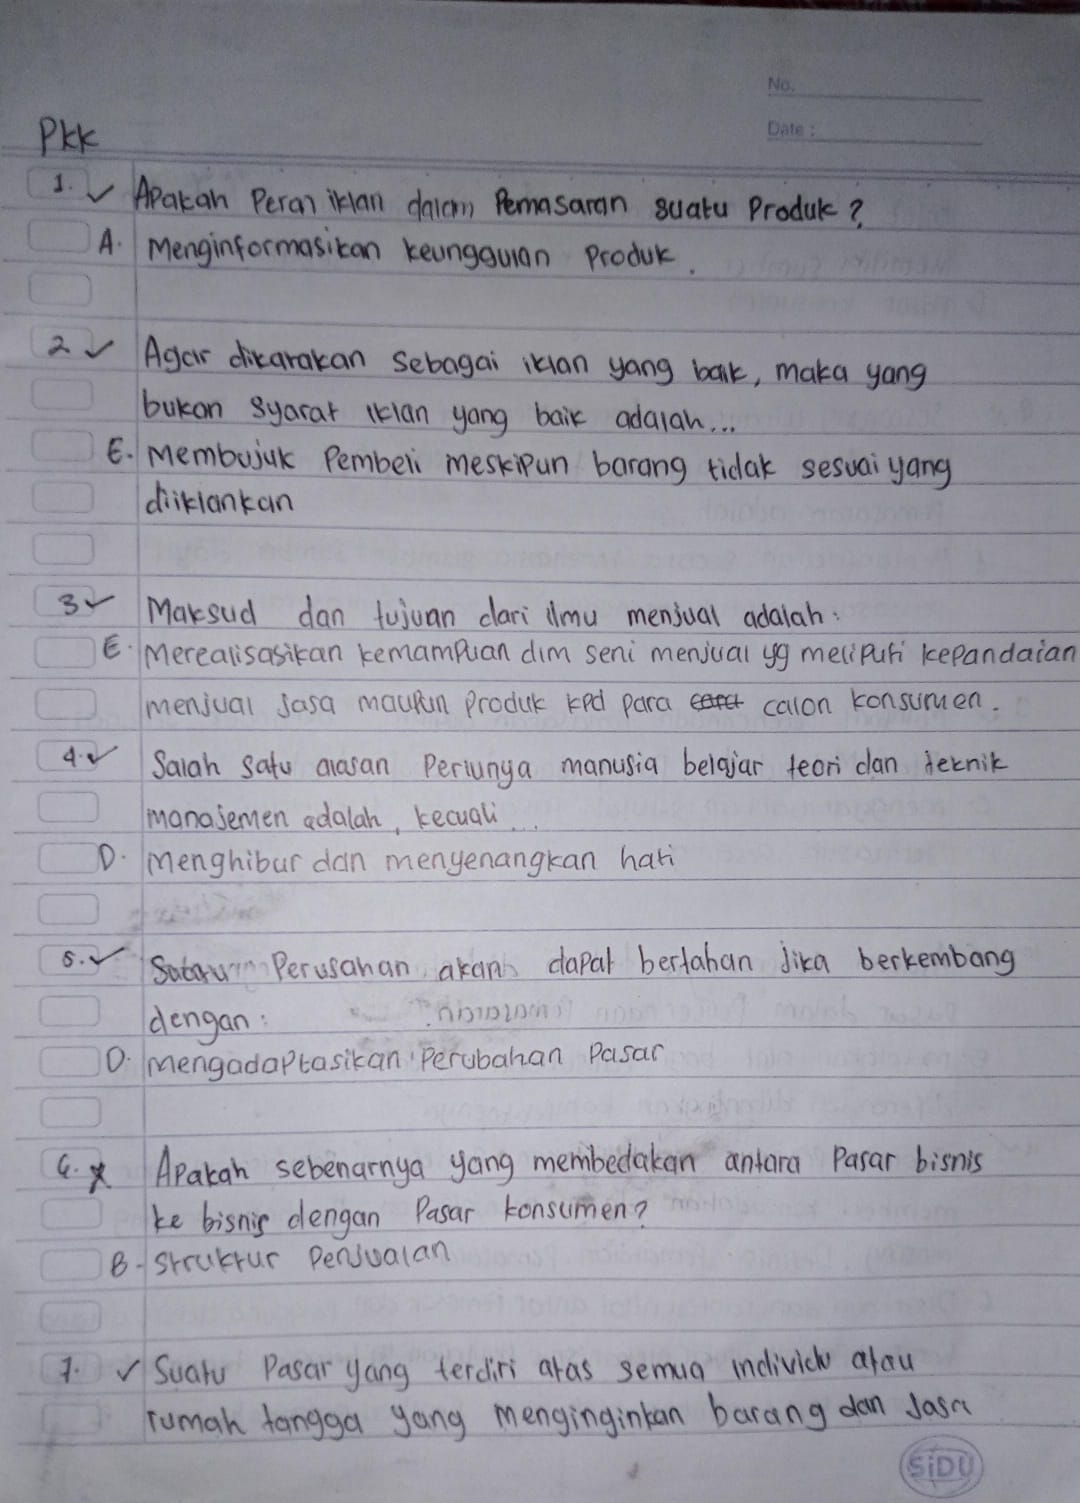 No.
Date :
PKK
1. ✓ Apakah Peran iklan dalam Pemasaran suatu Produk?
A. Menginformasikan keunggulan Produk.
2 ✓ Agar dikatakan sebagai iklan yang baik, maka yang
bukan syarat iklan yang baik adalah...
E. Membujuk Pembeli meskipun barang tidak sesuai yang
diiklankan
3 ✓ Maksud dan tujuan dari ilmu menjual adalah:
E. Merealisasikan kemampuan dlm seni menjual yg meliputi kepandaian
menjual Jasa maupun Produk kpd para calon konsumen.
4. ✓ Salah satu alasan Perlunya manusia belajar teori dan teknik
manajemen adalah, kecuali...
D. menghibur dan menyenangkan hati
5. ✓ Perusahan akan dapat bertahan Jika berkembang
dengan:
D. mengadaptasikan Perubahan Pasar
6. x Apakah sebenarnya yang membedakan antara Pasar bisnis
ke bisnis dengan Pasar konsumen?
B. Struktur Penjualan
7. ✓ Suatu Pasar yang terdiri atas semua individu atau
rumah tangga yang menginginkan barang dan Jasa
SiDU